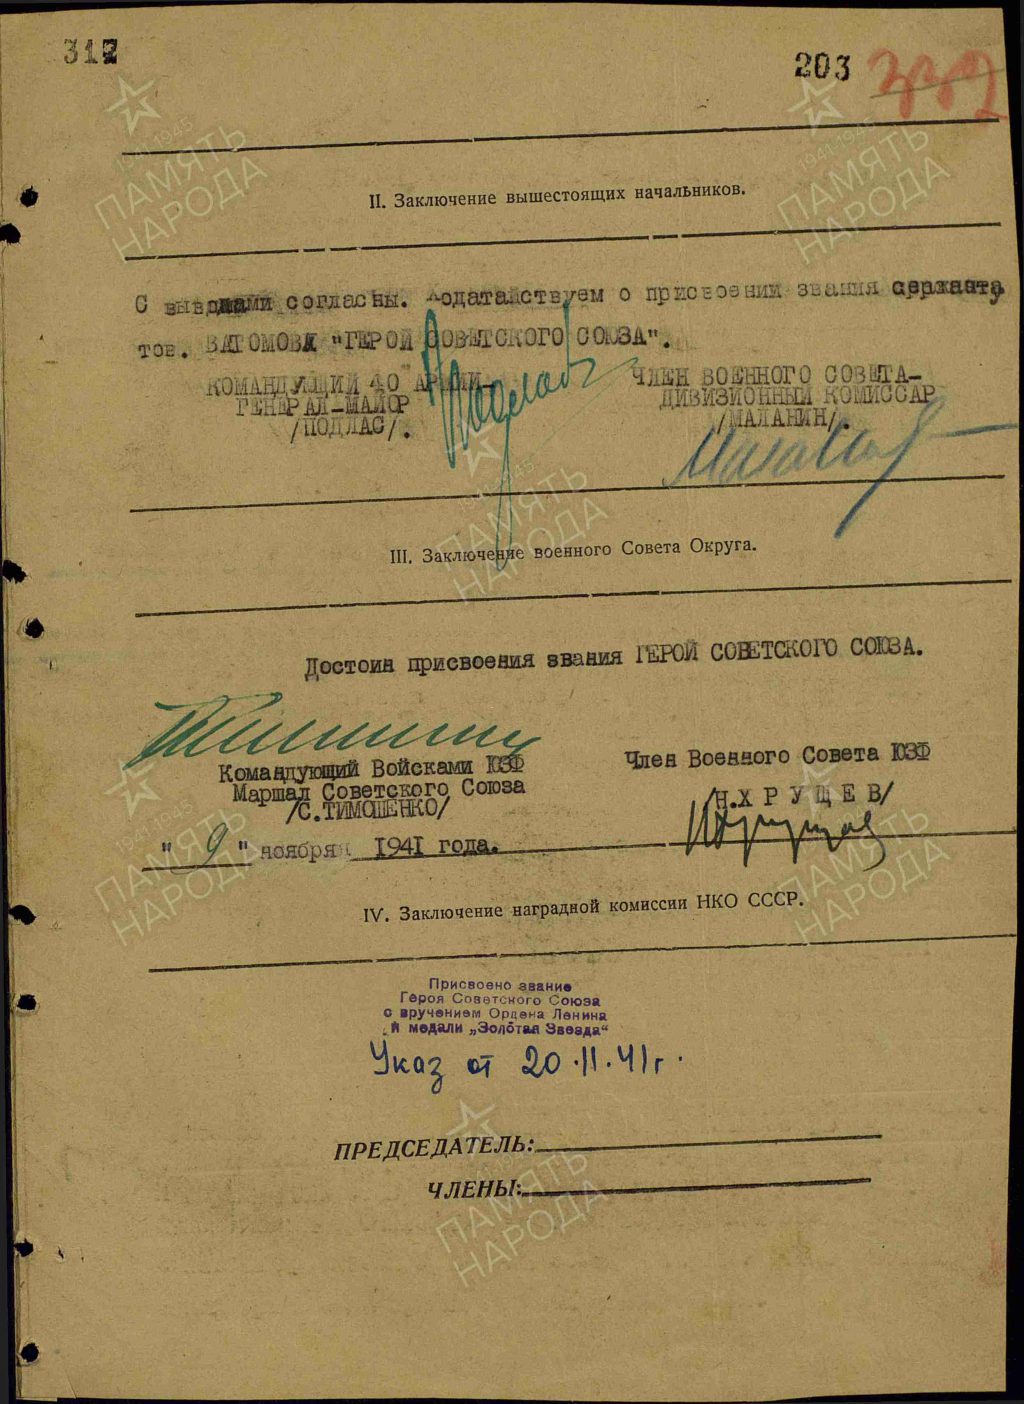 312
203 332
II. Заключение вышестоящих начальников.
С выводами согласны. Ходатайствуем о присвоении звания сержанта
тов. ВАТОМОВА "ГЕРОЙ СОВЕТСКОГО СОЮЗА".
КОМАНДУЮЩИЙ 40 АРМИИ ЧЛЕН ВОЕННОГО СОВЕТА-
ГЕНЕРАЛ-МАЙОР ДИВИЗИОННЫЙ КОМИССАР
/ПОДЛАС/. /МАЛАНИН/.
III. Заключение военного Совета Округа.
Достоин присвоения звания ГЕРОЙ СОВЕТСКОГО СОЮЗА.
Командующий Войсками ЮЗФ Член Военного Совета ЮЗФ
Маршал Советского Союза
/С.ТИМОШЕНКО/ /Н.ХРУЩЕВ/
"9" ноября 1941 года.
IV. Заключение наградной комиссии НКО СССР.
Присвоено звание
Героя Советского Союза
с вручением Ордена Ленина
и медали „Золотая Звезда"
Указ от 20.11.41г.
ПРЕДСЕДАТЕЛЬ:
ЧЛЕНЫ:
1941-1945
ПАМЯТЬ
НАРОДА